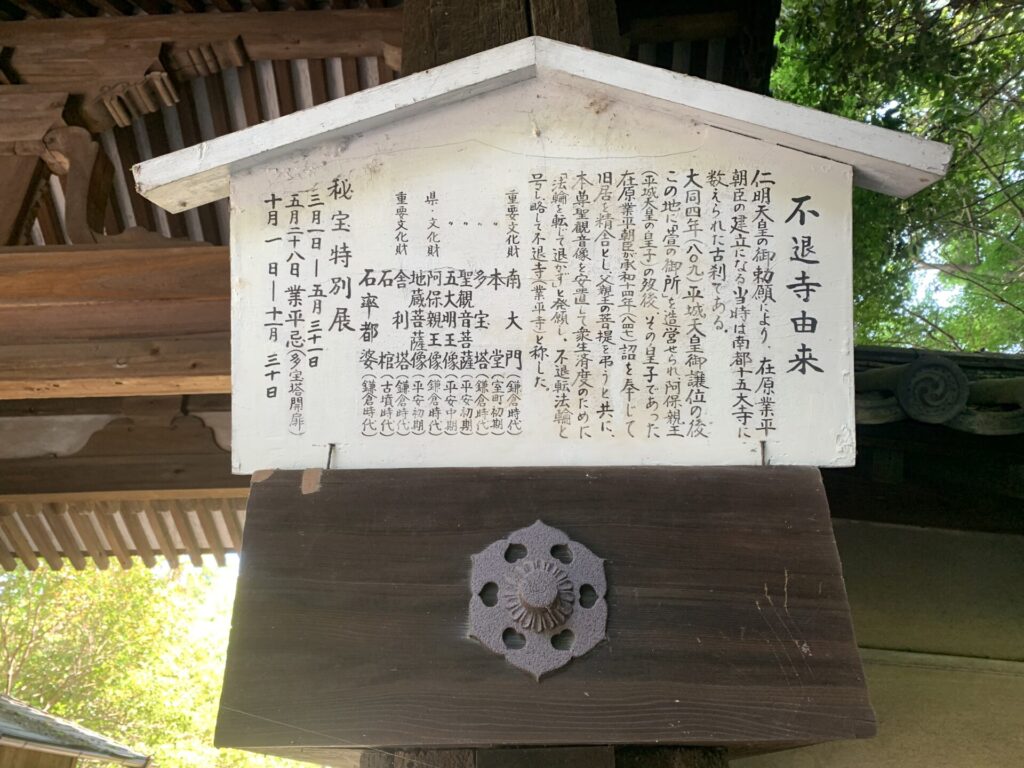 不退寺由来
仁明天皇の御勅願により、在原業平
朝臣の建立になる。当時は南都十五大寺に
数えられた古刹である。
大同四年(八〇九)平城天皇御譲位の後
この地に「萱の御所」を造営せられ阿保親王
(平城天皇の皇子)の歿後、その皇子であった
在原業平朝臣が承和十四年(八四七)詔を奉じて
旧居を精舎とし、父親王の菩提を弔うと共に、
本尊聖観音像を安置して衆生済度のために
「法輪を転じて退かず」と発願し、不退転法輪と
号し略して不退寺(業平寺)と称した。
重要文化財 南大門(鎌倉時代)
〃 本堂(室町初期)
〃 多宝塔(鎌倉時代)
〃 聖観音菩薩(平安初期)
〃 五大明王像(平安中期)
県・文化財 阿保親王像(鎌倉時代)
地蔵菩薩像(平安初期)
重要文化財 舎利塔(鎌倉時代)
石棺(古墳時代)
石率都婆(鎌倉時代)
秘宝特別展
三月一日―五月三十一日
五月二十八日業平忌(多宝塔開扉)
十月一日―十一月三十日